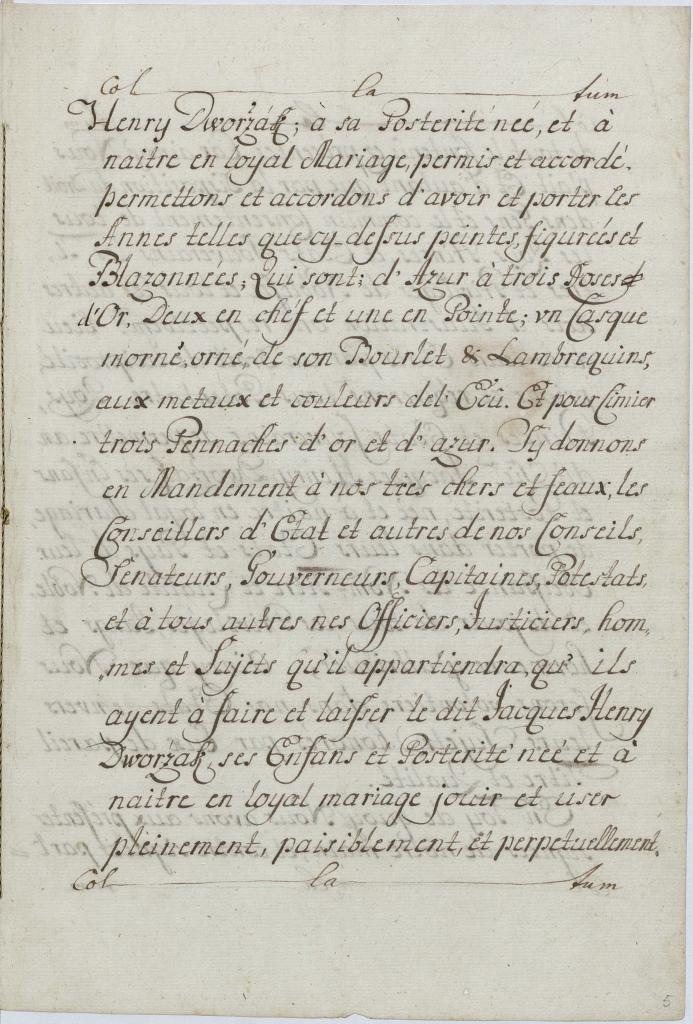 Col la tum
Henry Dworžák; à sa Posterité neé, et à
naitre en loyal Mariage, permis et accordé.
permettons et accordons d'avoir et porter les
Annes telles que cy-dessus peintes, figureés et
Blazonneés; Qui sont; d'Azur à trois Roses
d'Or, Deux en chéf et une en Pointe; vn Casque
morné, orné, de son Bourlet & Lambrequins,
aux metaux et couleurs del' Ecû. Et pour Cimier
trois Pennaches d'or et d'azur. Sy donnons
en Mandement à nos trés chers et feaux, les
Conseillers d'Etat et autres de nos Conseils,
Senateurs, Gouverneurs, Capitaines, Potestats,
et à tous autres nes Officiers, Justiciers, hom„
„mes et Sujets qu'il appartiendra, qu' ils
ayent à faire et laisser le dit Jacques Henry
Dworžak, ses Enfans et Posterité neé et à
naitre en loyal mariage jouir et user
pleinement, paisiblement, et perpetuellement.
Col la tum
5